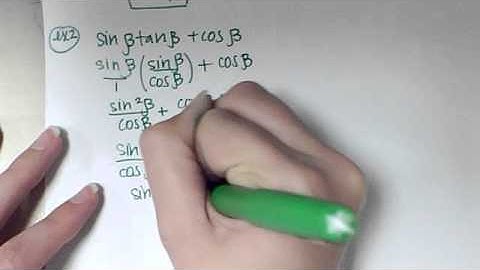 ex2 sinβtanβ + cosβ
sinβ/1 (sinβ/cosβ) + cosβ
sin²β/cosβ +
sin
cos
sin